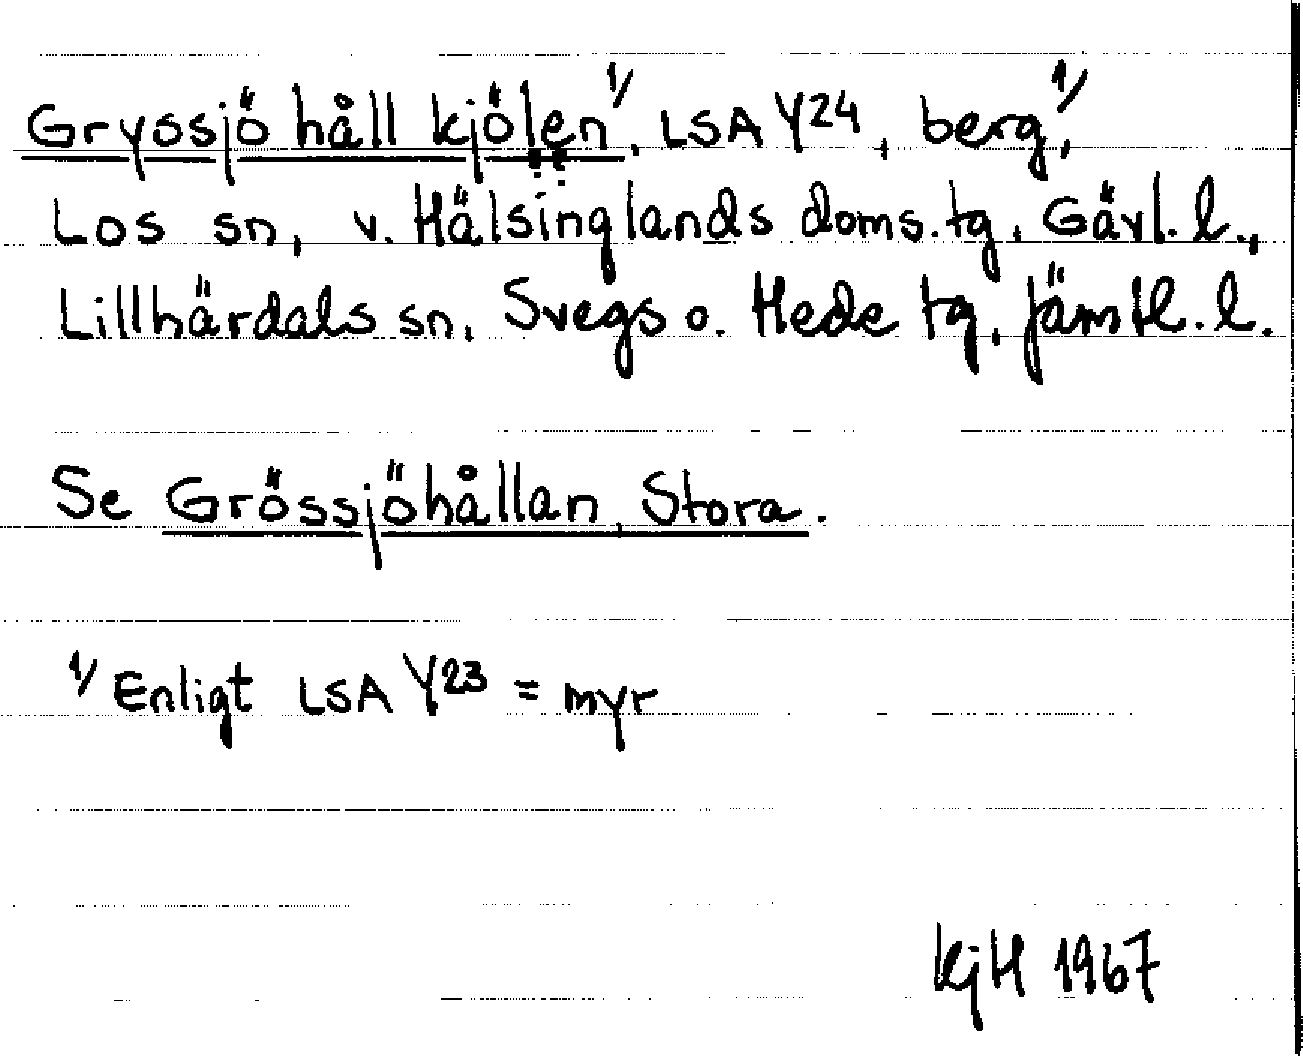 Gryssjö håll kjölen 1/, LSA Y24, berg 1/,
Los sn, v. Hälsinglands doms. tg, Gävl. l.,
Lillhärdals sn, Svegs o. Hede tg, Jämtl. l.
Se Grössjöhållan, Stora.
1/ Enligt LSA Y23 = myr
KjH 1967